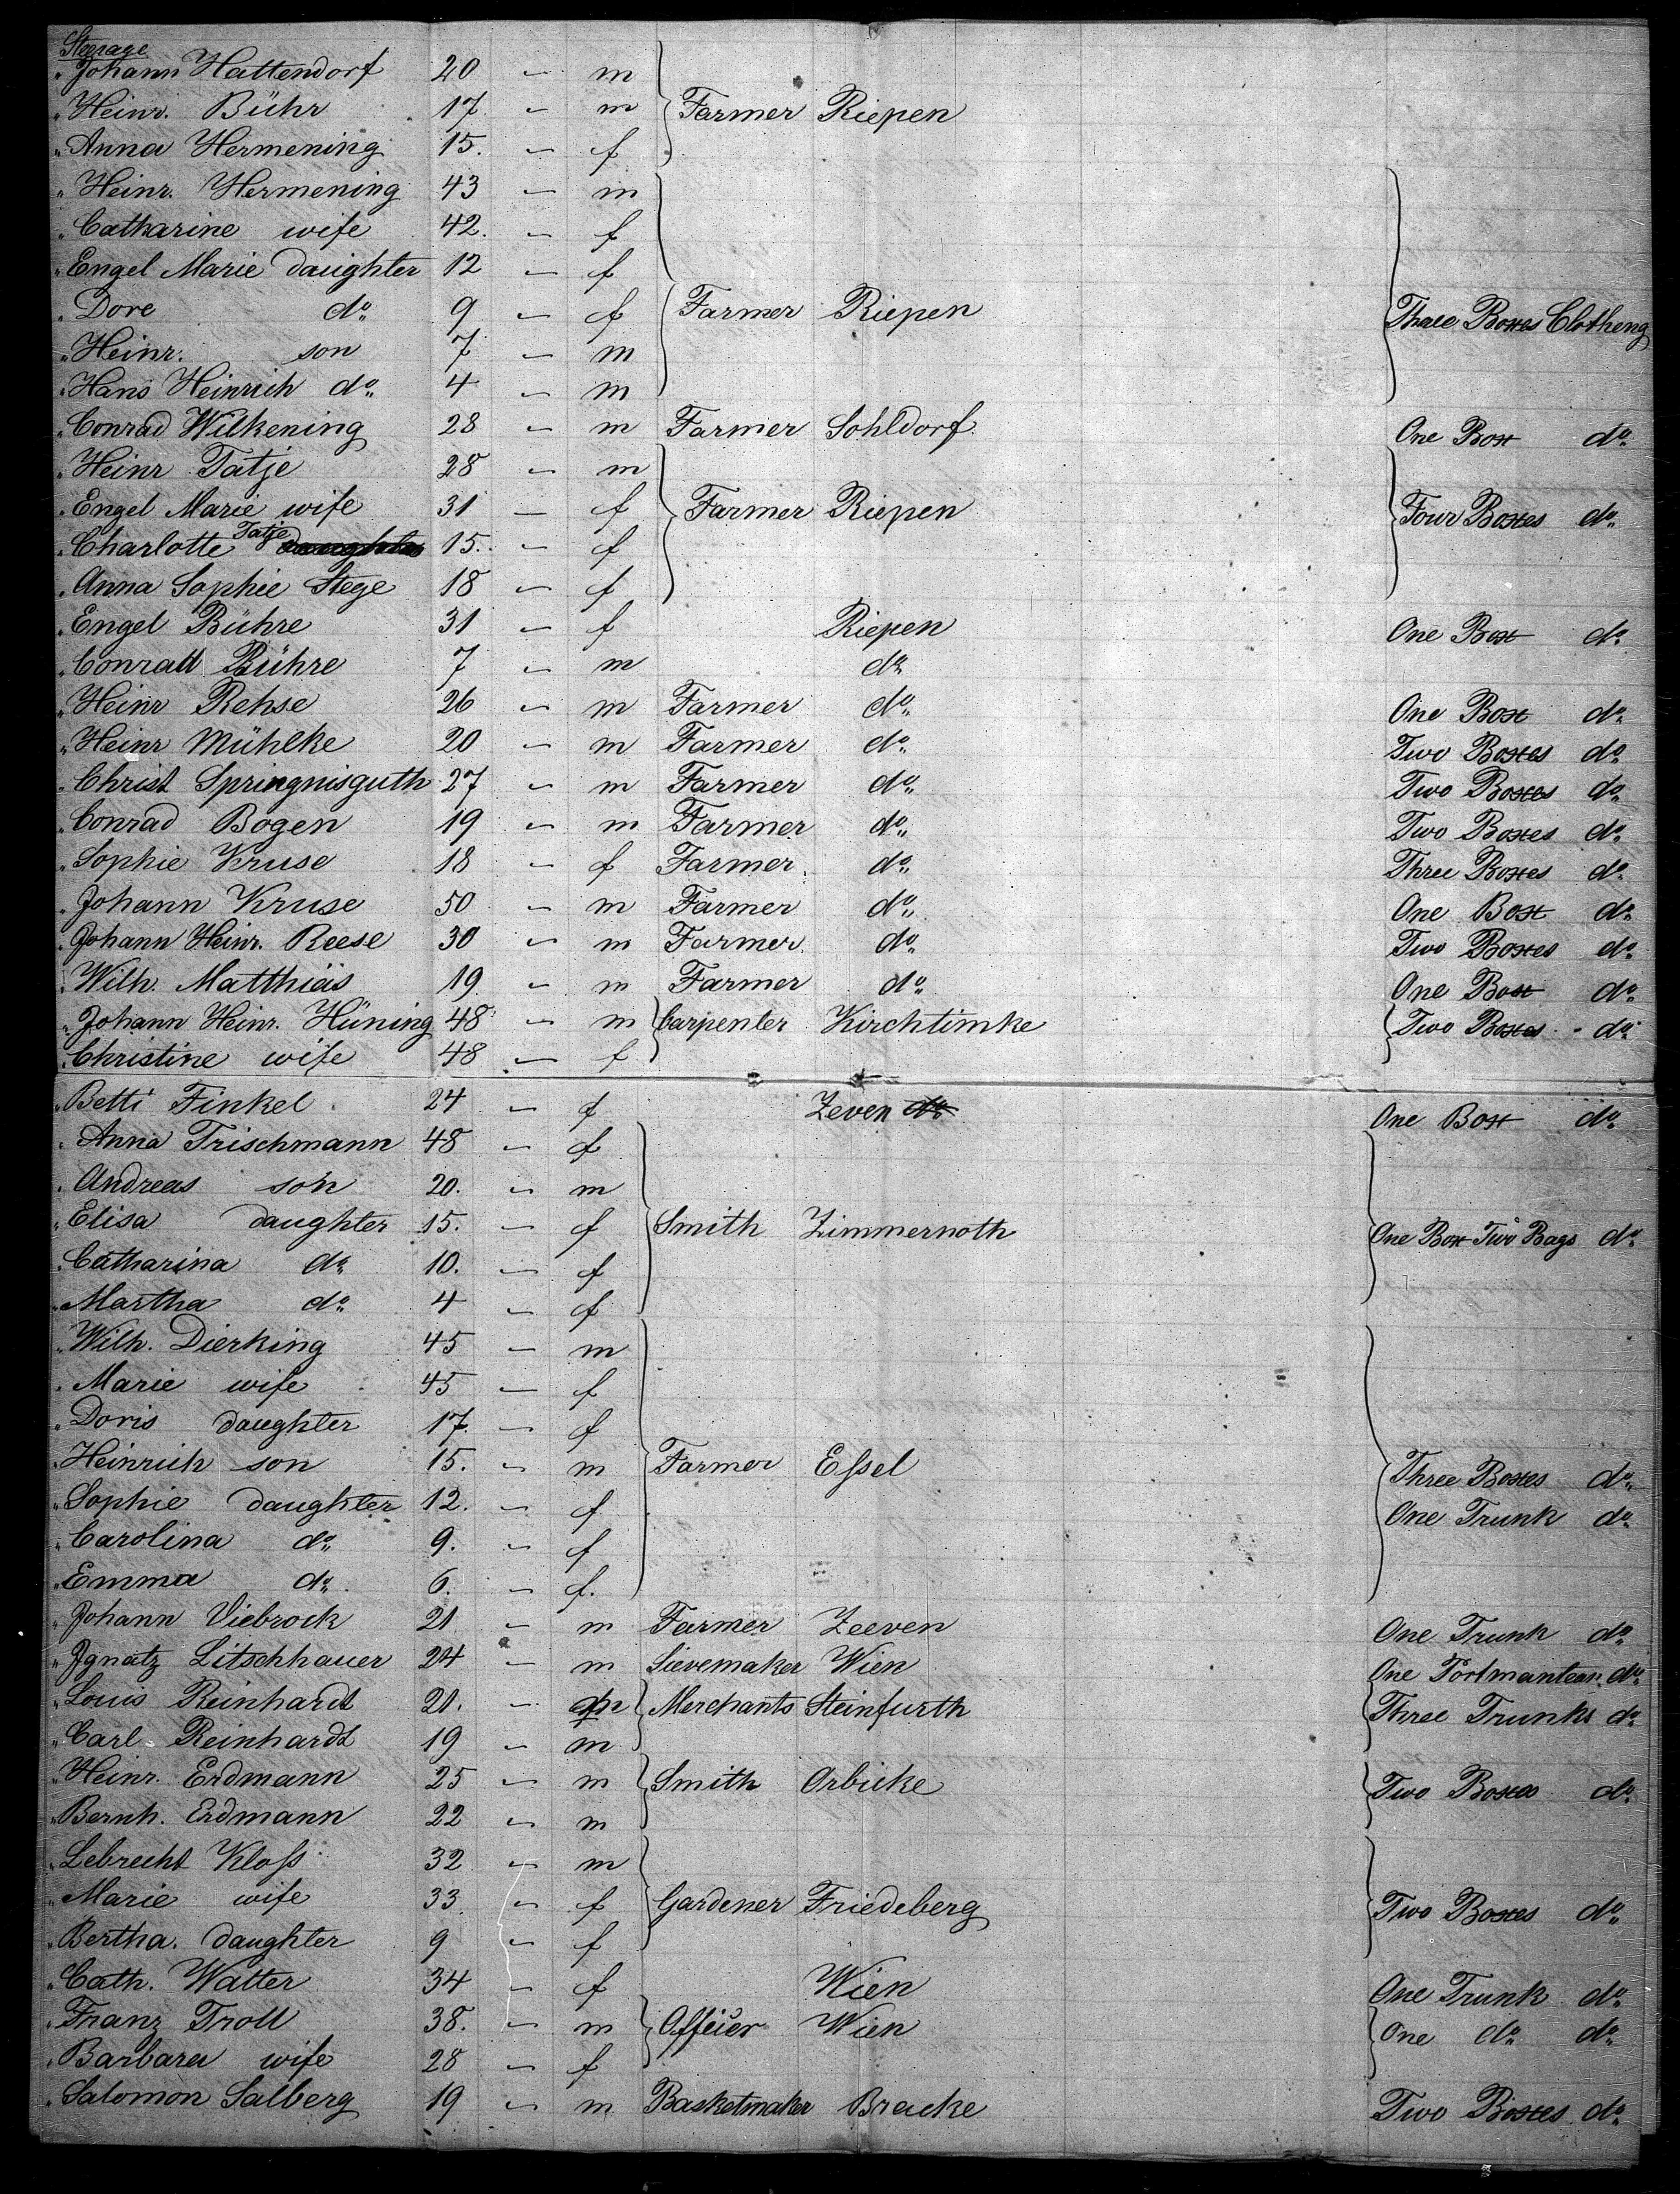 Steerage
" Johann Hattendorf 20 " m
" Heinr. Bühr 17 " m Farmer Riepen
" Anna Hermening 15. " f
" Heinr. Hermening 43 " m
" Catharine wife 42. " f
" Engel Marie daughter 12 " f
" Dore do. 9 " f Farmer Riepen Three Boxes Clotheng
" Heinr. son 7 " m
" Hans Heinrich do. 4 " m
" Conrad Wilkening 28 " m Farmer Sohldorf One Box do.
" Heinr Tatje 28 " m
" Engel Marie wife 31 " f Farmer Riepen Four Boxes do.
" Charlotte Tatje daughter 15. " f
" Anna Sophie Stege 18 " f
" Engel Bühre 31 " f Riepen One Box do.
" Conrad Bühre 7 " m do.
" Heinr Rehse 26 " m Farmer do. One Box do.
" Heinr Mühlke 20 " m Farmer do. Two Boxes do.
" Christ Springnisguth 27 " m Farmer do. Two Boxes do.
" Conrad Bogen 19 " m Farmer do. Two Boxes do.
" Sophie Kruse 18 " f Farmer do. Three Boxes do.
" Johann Kruse 50 " m Farmer do. One Box do.
" Johann Heinr. Reese 30 " m Farmer do. Two Boxes do.
" Wilh. Matthiäs 19 " m Farmer do. One Box do.
" Johann Heinr. Hüning 48 " m Carpenter Kirchtimke Two Boxes do.
" Christine wife 48 " f
" Betti Finkel 24 " f Zeven do. One Box do.
" Anna Trischmann 48 " f
" Andreas son 20. " m
" Elisa daughter 15. " f Smith Zimmernoth One Box Two Bags do.
" Catharina do. 10. " f
" Martha do. 4 " f
" Wilh. Dierking 45 " m
" Marie wife 45 " f
" Doris daughter 17. " f
" Heinrich son 15. " m Farmer Eſsel Three Boxes do.
" Sophie daughter 12. " f One Trunk do.
" Carolina do. 9. " f
" Emma do. 6. " f.
" Johann Viebrock 21 " m Farmer Zeeven One Trunk do.
" Ignatz Litschhauer 24 " m Sievemaker Wien One Portmantean do.
" Louis Reinhardt 21. " m Merchants Steinfurth Three Trunks do.
" Carl Reinhardt 19 " m
" Heinr. Erdmann 25 " m Smith Orbicke Two Boxes do.
" Bernh. Erdmann 22 " m
" Lebrecht Kloſs 32 " m
" Marie wife 33 " f Gardener Friedeberg Two Boxes do.
" Bertha. daughter 9 " f
" Cath. Walter 34 " f Wien One Trunk do.
" Franz Troll 38. " m Officier Wien One do. do.
" Barbara wife 28 " f
" Salomon Salberg 19 " m Basketmaker Bracke Two Boxes do.